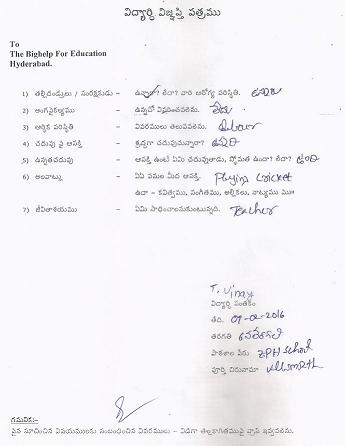 విద్యార్థి విజ్ఞప్తి పత్రము
To
The Bighelp For Education
Hyderabad.
1) తల్లిదండ్రులు / సంరక్షకుడు - ఉన్నారా? లేదా? వారి ఆరోగ్య పరిస్థితి. ఉన్నారు
2) అంగవైకల్యము - ఉన్నచో వివరించవలెను. లేదు
3) ఆర్థిక పరిస్థితి - వివరములు తెలుపవలెను.
4) చదువు పై ఆసక్తి - శ్రద్ధగా చదువుచున్నారా? ఉన్నది
5) ఉన్నతచదువు - ఆసక్తి ఉంటే ఏమి చదువుతారు, స్తోమత ఉందా? లేదా? ఉంది
6) అలవాట్లు - ఏఏ పనుల మీద ఆసక్తి. Playing Cricket
ఉదా - కవిత్వము, సంగీతము, అల్లికలు, నాట్యము మొ॥
7) జీవితాశయము - ఏమి సాధించాలనుకుంటున్నది. Teacher
T. Vinay
విద్యార్థి సంతకం
తేది. 09-02-2016
తరగతి 6వ తరగతి
పాఠశాల పేరు ZPH School
పూర్తి చిరునామా
గమనిక:-
పైన సూచించిన విషయములకు సంబంధించిన వివరములు - విడిగా తెల్లకాగితముపై వ్రాసి ఇవ్వవలెను.